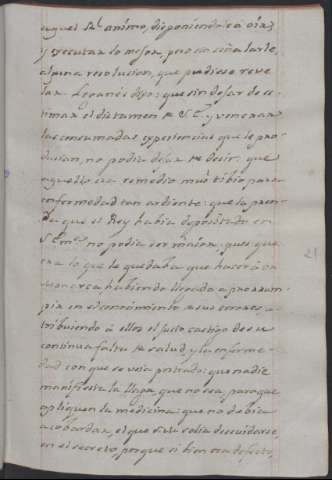 aquel Rl. animo, disponiendose a oir,
y executar lo mejor, pero sin señalarle
alguna resolucion, que pudiese reve
lar. Leganés dijo: que sin dejar de es-
timar el dictamen de S. E. y venerar
las consumadas experiencias que le pro-
ducian, no podia dejar de decir: que
aquello era remedio muy tibio para
enfermedad tan ardiente: que la pren-
da que el Rey habia depositado en
S. Em.ª no podia ser maior, pues que
era lo que le quedaba que hacer à un
Monarca habiendo llegado a prorrum-
pir en el conocimiento de sus errores, a-
tribuiendo à ellos el justo castigo de su
continua falta de salud, y la enferme-
dad con que se veia postrado: que nadie
manifiesta la llaga, que no sea, para que
apliquen la medicina: que no debia
acobardar, el que S. M. solia descuidarse
en el secreto, porque si bien era defecto,
21